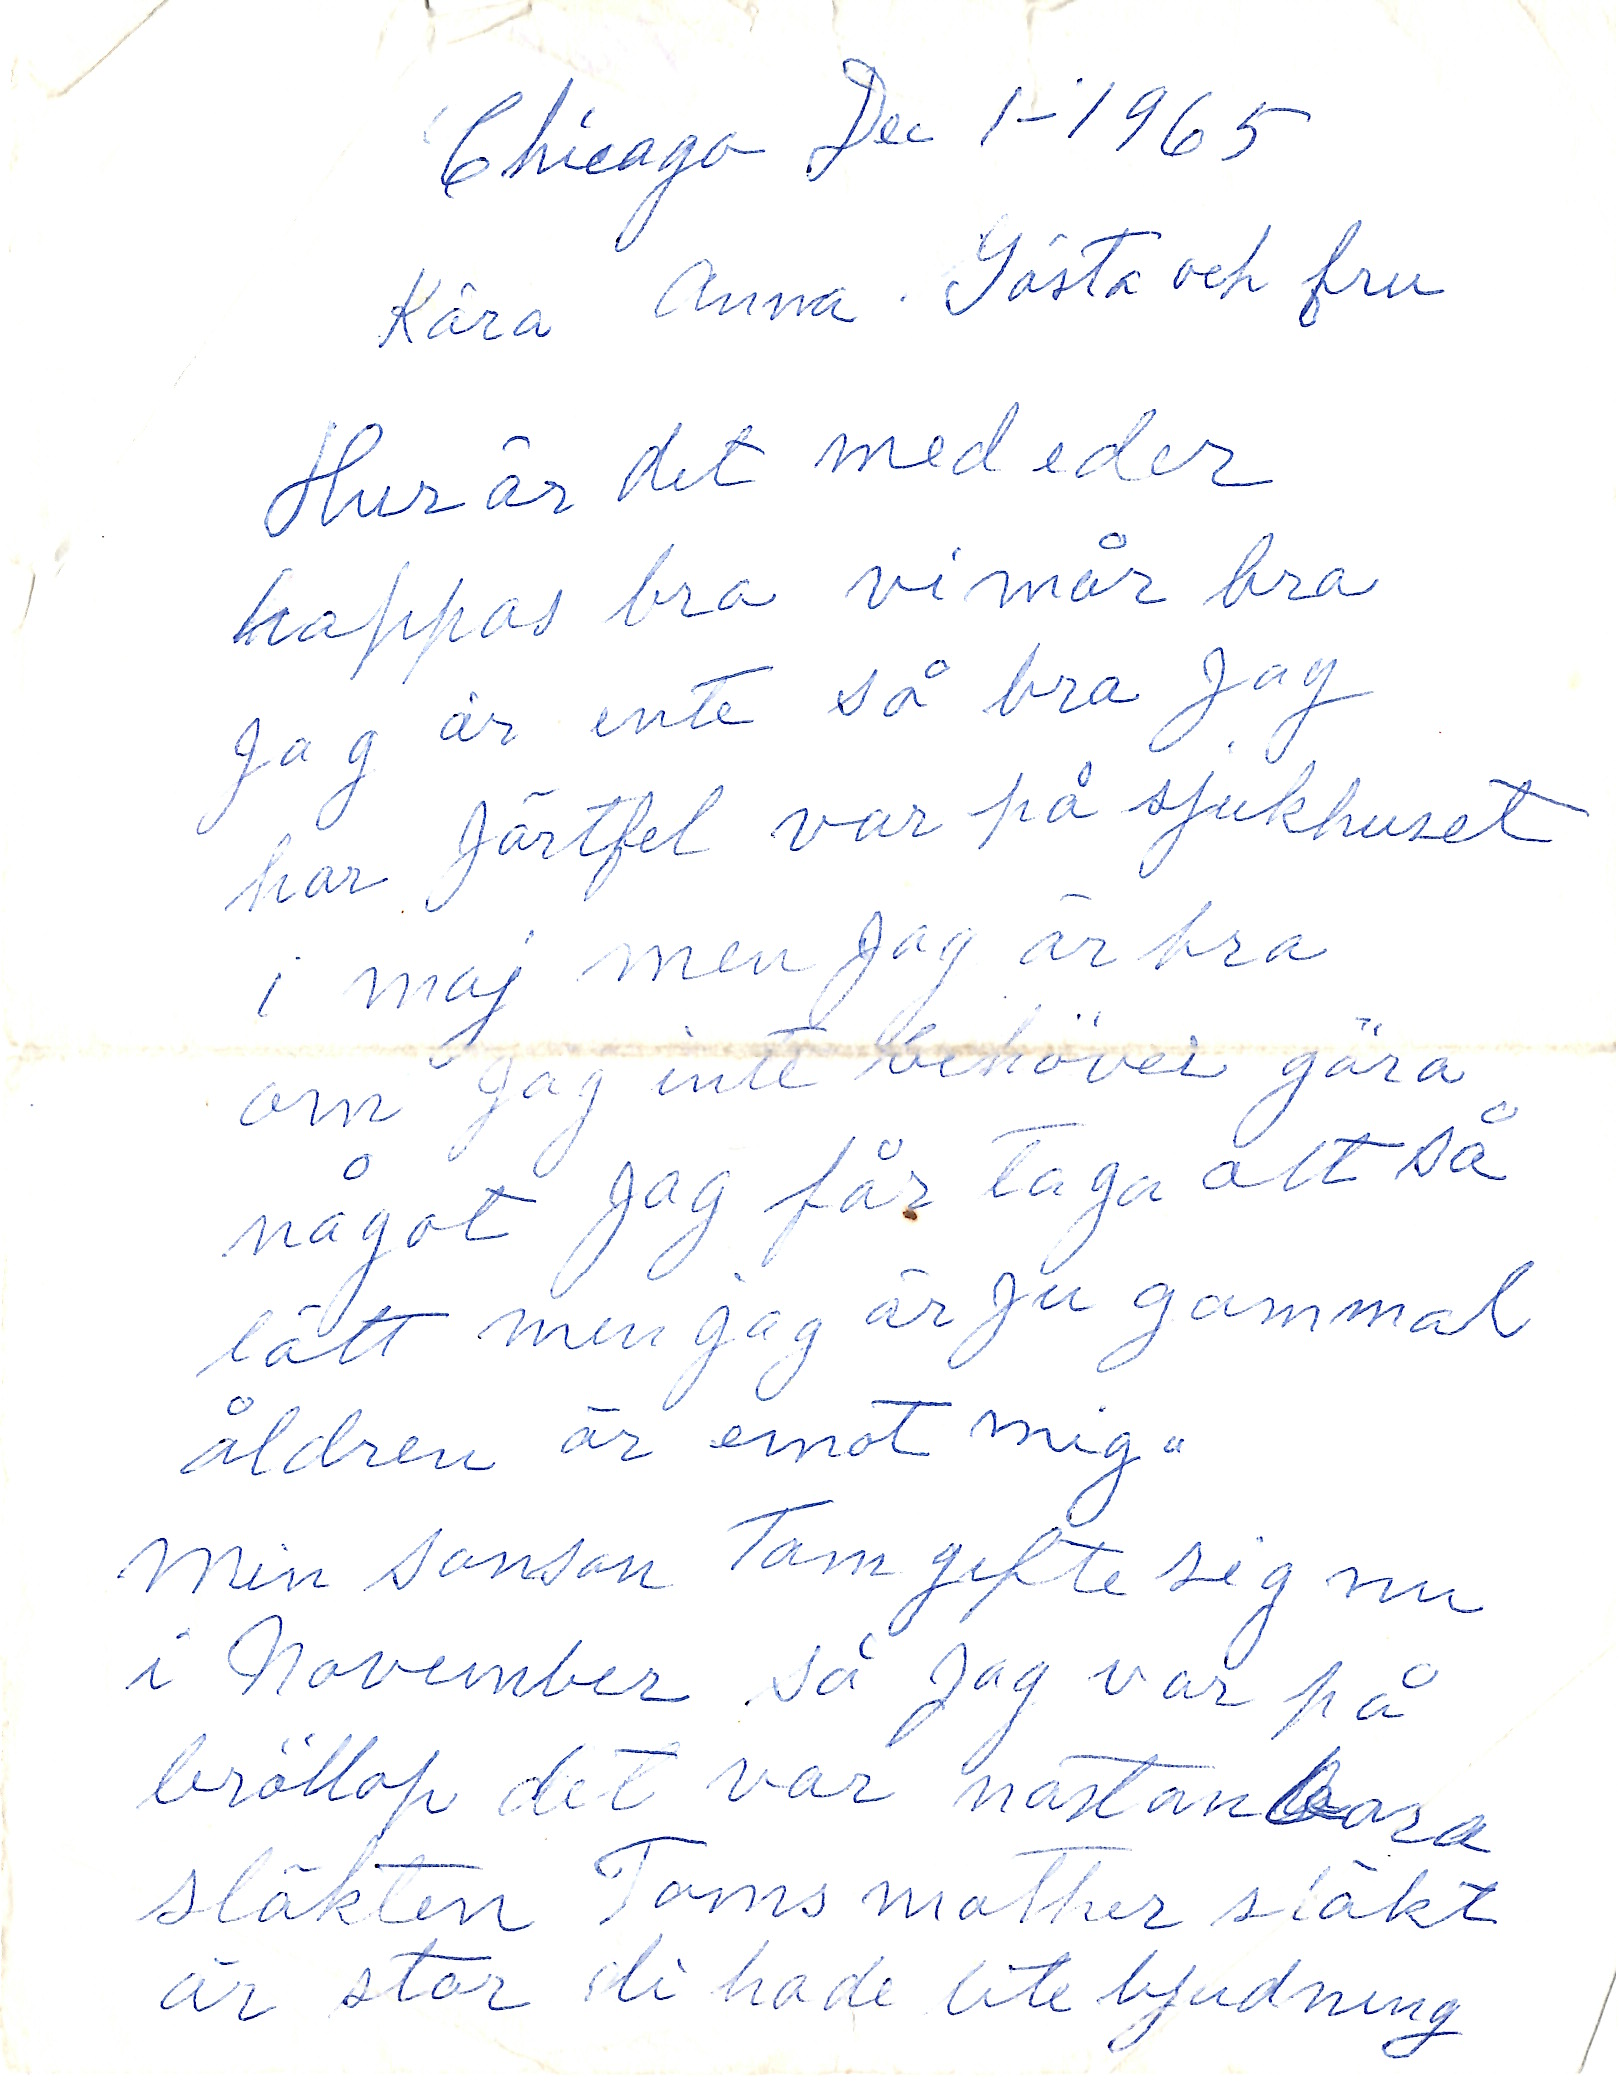 Chicago Dec 1-1965
Kära Anna. Gösta och fru
Hur är det med eder
hoppas bra vi mår bra
Jag är ente så bra Jag
har Järtfel var på sjukhuset
i maj men Jag är bra
om Jag inte behöver göra
något Jag får taga allt så
lätt men jag är Ju gammal
åldren är emot mig.
Min sonson Tom gifte sig nu
i November så Jag var på
bröllop det var nästan bara
släkten Toms mother släkt
är stor di hade lite bjudning